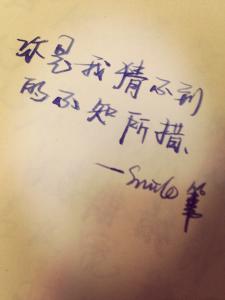 你是我猜不到
的不知所措、
—Smile 筆